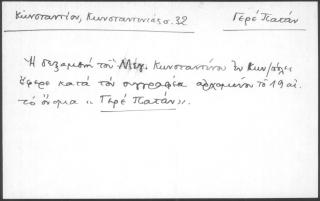 Κωνσταντίου, Κωνσταντινιάς σ. 32 Γερέ Πατάν
Ἡ δεξαμενή τοῦ Μεγ. Κωνσταντίνου ἐν Κων/πόλει
ἔφερε κατά τόν συγγραφέα ἀρχομένου τοῦ 19 αἰ.
τό ὄνομα « Γερέ Πατάν ».